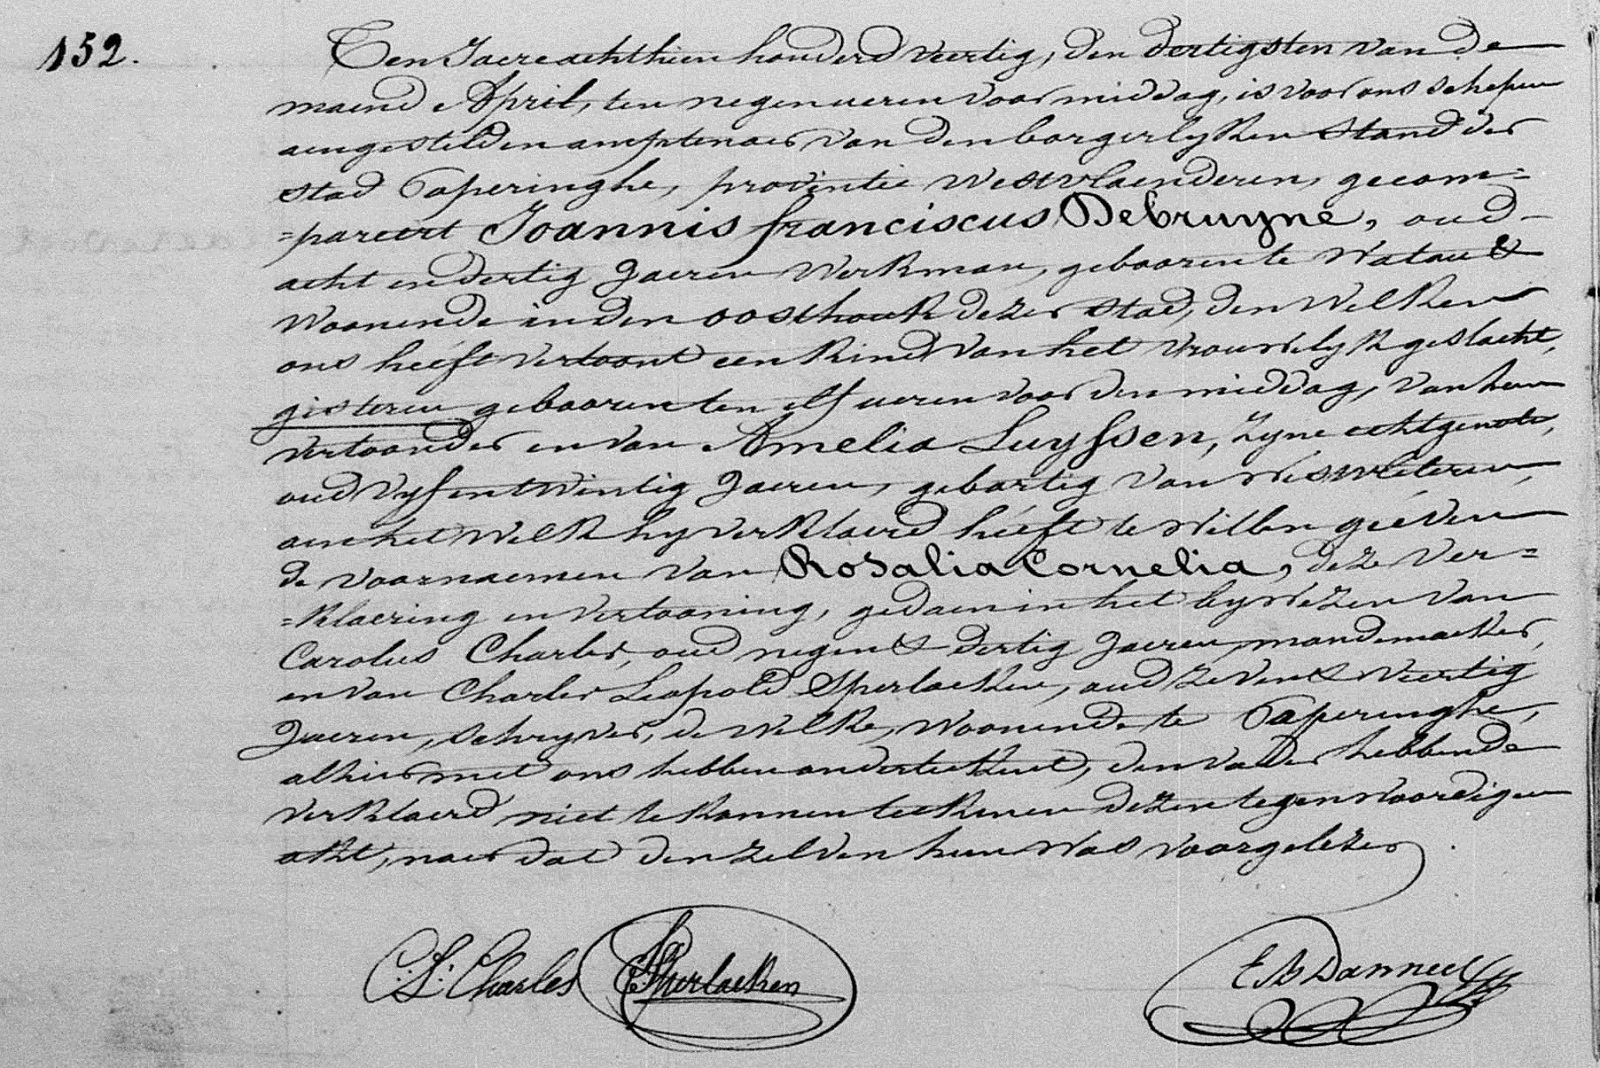 152.
Ten Jaere achthien honderd veertig, den dertigsten van de
maend April, ten negen ueren voormiddag, is voor ons schepen
aengestelden amptenaer van den borgerlyken stand der
stad Poperinghe, provintie Westvlaenderen, gecom=
=pareert Joannis franciscus Debruyne, oud
acht en dertig Jaeren werkman, gebooren te Watou &
woonende in den oosthoek dezer stad, den welken
ons heeft vertoont een kind van het vrouwelyk geslacht,
gisteren gebooren ten elf ueren voor den middag, van hem
vertoonder en van Amelia Luyssen, zyne echtgenote,
oud vyfentwintig Jaeren, gebortig van Westvleteren,
aen het welk hy verklaerd heeft te willen geeven
de voornaemen van Rosalia Cornelia, deze ver=
=klaering en vertooning, gedaen in het bywezen van
Carolus Charles, oud negen & dertig Jaeren, mandemaeker,
en van Charles Leopold Sperlaeken, oud zeven & veertig
Jaeren, schryver, de welke, woonende te Poperinghe,
alhier met ons hebben onderteekent, den vader hebbende
verklaerd niet te konnen teekenen dezen tegenwoordigen
akt, naer dat den zelven hun was voorgelezen
C: L: Charles Sperlaeken